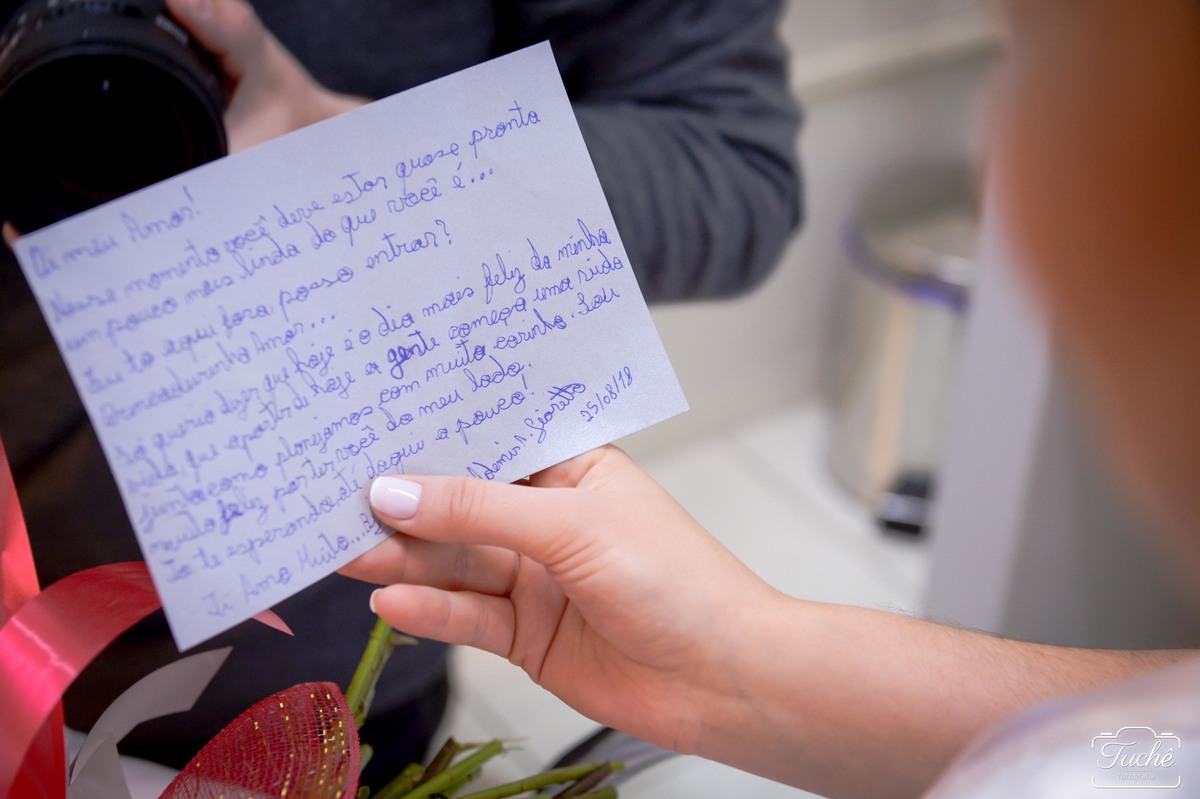 Oi meu Amor!
Nesse momento você deve estar quase pronta
um pouco mais linda do que você é...
Eu to aqui fora posso entrar?
Brincadeirinha Amor...
Só queria dizer que hoje é o dia mais feliz da minha
vida, que apartir di hoje a gente começa uma vida
junta como planejamos com muito carinho. Sou
muito feliz por ter você do meu lado.
to te esperando até daqui a pouco!
Ti Amo Muito...
25/08/18
Tuchê
fotografia